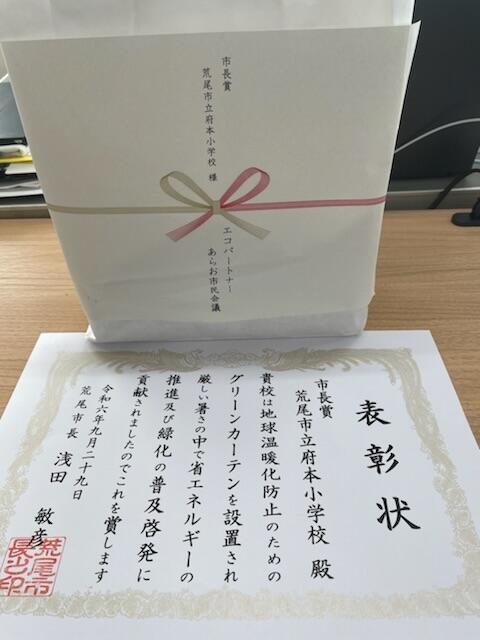 市長賞
荒尾市立府本小学校 様
エコパートナー
あらお市民会議
表彰状
市長賞
荒尾市立府本小学校 殿
貴校は地球温暖化防止のための
グリーンカーテンを設置され
厳しい暑さの中で省エネルギーの
推進及び緑化の普及啓発に
貢献されましたのでこれを賞します
令和六年九月二十九日
荒尾市長 浅田 敏彦
荒尾市
長之印